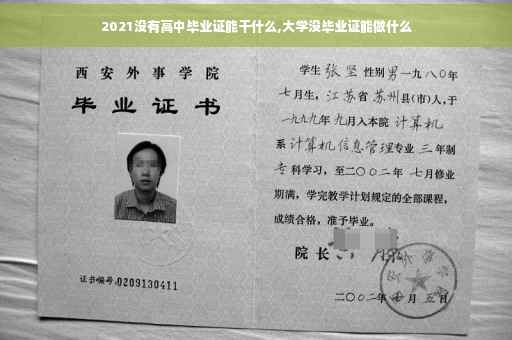 2021没有高中毕业证能干什么,大学没毕业证能做什么
西安外事学院
毕业证书
证书编号:0209130411
学生 张坚 性别 男 一九八〇年
七月生, 江苏省 苏州县(市)人,于
一九九九年 九月入本院 计算机
系 计算机信息管理专业 三 年制
专 科学习, 至二〇〇二年 七月修业
期满, 学完教学计划规定的全部课程,
成绩合格, 准予毕业。
院长
二〇〇二年 月 五日